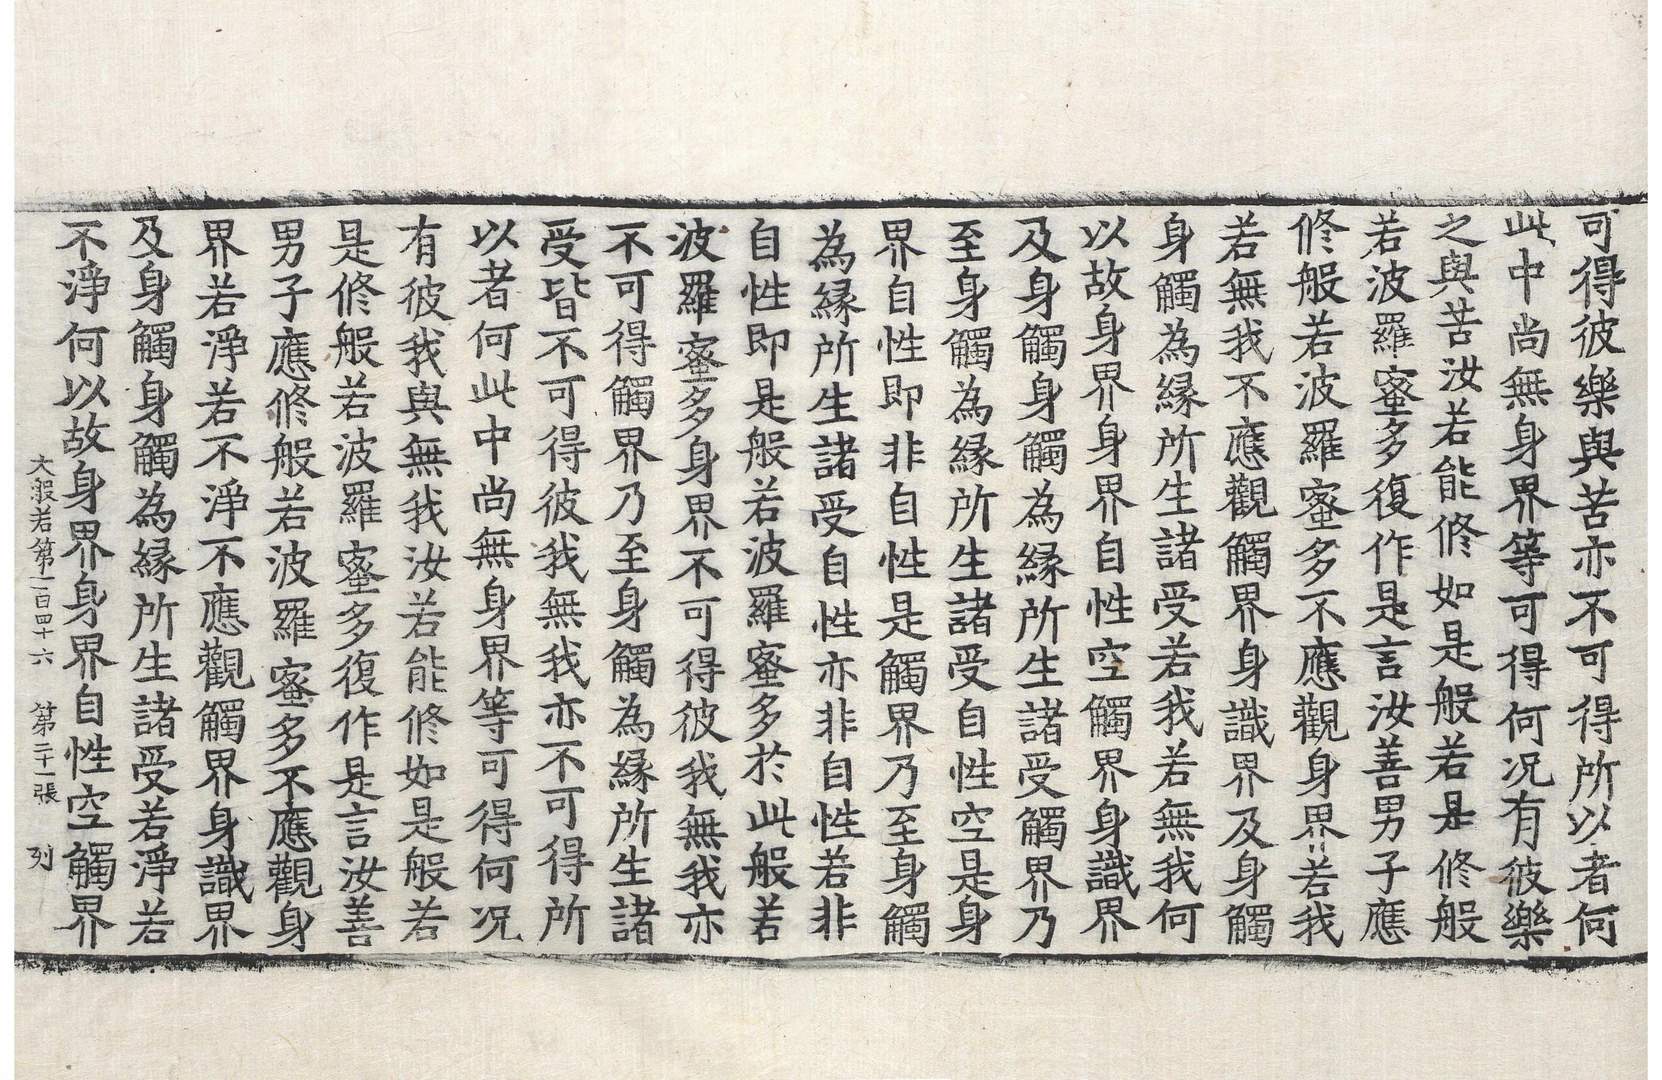 可得彼樂與苦亦不可得所以者何
此中尚無身界等可得何况有彼樂
之與苦汝若能修如是般若是修般
若波羅蜜多復作是言汝善男子應
修般若波羅蜜多不應觀身界若我
若無我不應觀觸界身識界及身觸
身觸為緣所生諸受若我若無我何
以故身界身界自性空觸界身識界
及身觸身觸為緣所生諸受觸界乃
至身觸為緣所生諸受自性空是身
界自性即非自性是觸界乃至身觸
為緣所生諸受自性亦非自性若非
自性即是般若波羅蜜多於此般若
波羅蜜多身界不可得彼我無我亦
不可得觸界乃至身觸為緣所生諸
受皆不可得彼我無我亦不可得所
以者何此中尚無身界等可得何况
有彼我與無我汝若能修如是般若
是修般若波羅蜜多復作是言汝善
男子應修般若波羅蜜多不應觀身
界若淨若不淨不應觀觸界身識界
及身觸身觸為緣所生諸受若淨若
不淨何以故身界身界自性空觸界
大般若第一百四十六 第二十一張 列